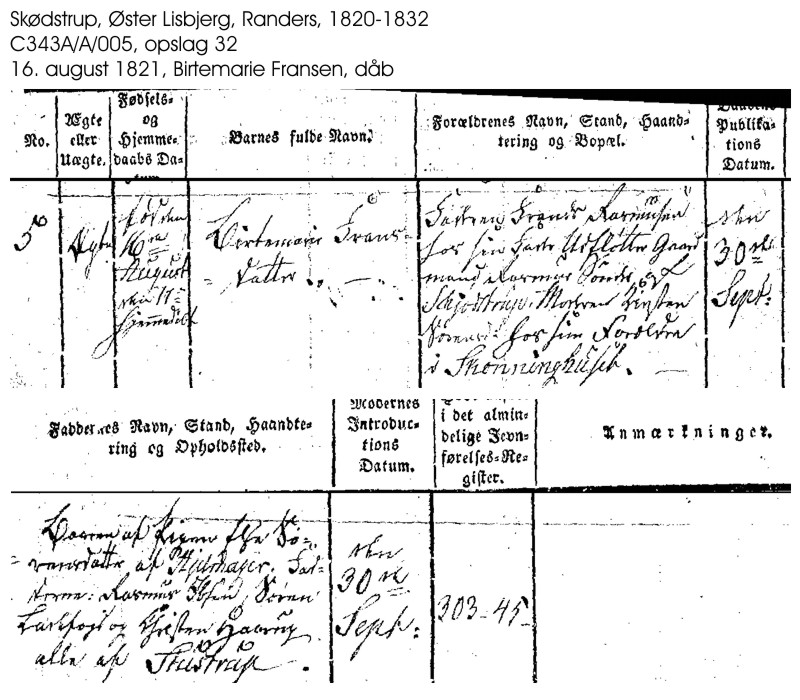 Skødstrup, Øster Lisbjerg, Randers, 1820-1832
C343A/A/005, opslag 32
16. august 1821, Birtemarie Fransen, dåb
No.
Ægte
eller
Uægte.
Fødsels-
og
Hjemme-
daabs Da-
tum
Barnets fulde Navn.
Forældrenes Navn, Stand, Haand-
tering og Bopæl.
Daabens
Publika-
tions
Datum.
Ægte
født den
16de
August
den 17
hjemmedøbt
Birtemarie Frans-
datter
Faderen Frands Rasmusen
hos sin Fader Udflötter Gaard
mand Rasmus
Schjödstrup. Moderen Kirsten
hos sin Forældre
i Skonninghused.
den
30te
Sept:
Faddernes Navn, Stand, Haandte-
ring og Opholdssted.
Modernes
Introduc-
tions
Datum.
i det almin-
delige Jevn-
førelses-Re-
gister.
Anmærkninger.
Baaren af Pigen Else Sö-
rensdatter af Hjelmager. Fad-
derne: Rasmus Ibsen, Sören
og Christen Haarup
alle af
den
30te
Sept:
303-45-